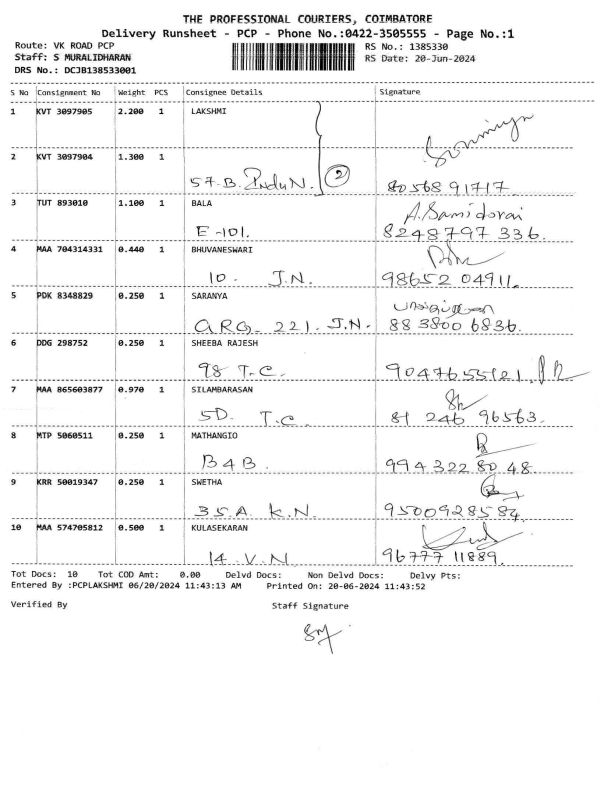 THE PROFESSIONAL COURIERS, COIMBATORE
Delivery Runsheet - PCP - Phone No.:0422-3505555 - Page No.:1
Route: VK ROAD PCP RS No.: 1385330
Staff: S MURALIDHARAN RS Date: 20-Jun-2024
DRS No.: DCJB138533001
S No Consignment No Weight PCS Consignee Details Signature
1 KVT 3097905 2.200 1 LAKSHMI
2 KVT 3097904 1.300 1
57.B. 2 80568 91717.
3 TUT 893010 1.100 1 BALA A. Samidorai
E-101. 8248797 336.
4 MAA 704314331 0.440 1 BHUVANESWARI
10. J.N. 98652 04911.
5 PDK 8348829 0.250 1 SARANYA
ARG- 221. J.N. 883800 6836.
6 DDG 298752 0.250 1 SHEEBA RAJESH
98 T.C. 9047655121.
7 MAA 865603877 0.970 1 SILAMBARASAN
5D. T.C. 81 246 96563.
8 MTP 5060511 0.250 1 MATHANGIO
B4B. 994 322 80 48.
9 KRR 50019347 0.250 1 SWETHA
35.A. K.N. 9500928584.
10 MAA 574705812 0.500 1 KULASEKARAN
14. V.N. 96777 11889.
Tot Docs: 10 Tot COD Amt: 0.00 Delvd Docs: Non Delvd Docs: Delvy Pts:
Entered By :PCPLAKSHMI 06/20/2024 11:43:13 AM Printed On: 20-06-2024 11:43:52
Verified By Staff Signature